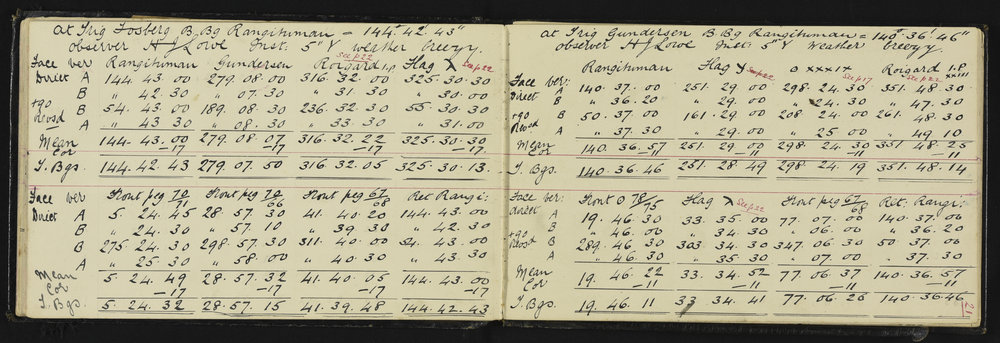 at Trig Fosberg B. Bg Rangihuman = 144° 42' 43"
observer H J Lowe Inst. 5" Y weather breezy.
Face ver Rangihuman Gundersen Rorgard I.P Flag X
See p 22 See p 22
Direct A 144. 43. 00 279. 08. 00 316. 32. 00 325. 30. 30
B " 42. 30 " 07. 30 " 31. 30 " 30. 00
+90 B 54. 43. 00 189. 08. 30 236. 32. 30 55. 30. 30
Revsd A " 43 30 " 08. 30 " 33. 30 " 31. 00
Mean 144. 43. 00 279. 08. 07 316. 32. 22 325. 30. 30
Cor -17 -17 -17 -17
T. Bgs. 144. 42. 43 279. 07. 50 316 32. 05 325. 30. 13.
Face ver Front peg 70/71 Front peg 70/66 Front peg 67/68 Ret Rangi:
Direct A 5. 24. 45 28. 57. 30 41. 40. 20 144. 43. 00
B " 24. 30 " 57. 10 " 39 30 " 42. 30
B 275. 24. 30 298. 57. 30 311. 40. 00 54. 43. 00
A " 25. 30 " 58. 00 " 40. 30 " 43. 30
Mean 5. 24. 49 28. 57. 32 41. 40. 05 144. 43. 00
Cor -17 -17 -17 -17
T. Bgs. 5. 24. 32 28. 57. 15 41. 39. 48 144. 42. 43
at Trig Gundersen B. Bg Rangihuman = 140° 36' 46"
observer H J Lowe Inst: 5" Y Weather breezy.
Face ver: Rangihuman Flag Y O XXXIX Rorgard I.P XXIII
See p 22 See p 17 See p 22
Direct A 140. 37. 00 251. 29. 00 298. 24. 30 351. 48. 30
B " 36. 20 " 29. 00 " 24. 30 " 47. 30
+90 B 50. 37. 00 161. 29. 00 208. 24. 00 261. 48. 30
Revsd A " 37. 30 " 29. 00 " 25. 00 " 49 10
Mean 140. 36. 57 251. 29. 00 298. 24. 30 351 48. 25
Cor -11 -11 -11 -11
T. Bgs 140. 36. 46 251. 28 49 298. 24. 19 351. 48. 14
Face ver: Front O 78/95 Flag X Front peg 67/68 Ret. Rangi:
See p 22
direct A 19. 46. 30 33. 35. 00 77. 07. 00 140. 37. 00
B " 46. 00 " 34. 30 " 06. 00 " 36. 20
+90 B 289. 46. 30 303. 34. 30 347. 06. 30 50. 37. 00
Revsd A " 46. 30 " 35 30 " 07. 00 " 37. 30
Mean 19. 46. 22 33. 34. 52 77. 06. 37 140. 36. 57
Cor -11 -11 -11 -11
T. Bgs. 19. 46. 11 33 34. 41 77. 06. 26 140. 36. 46
21